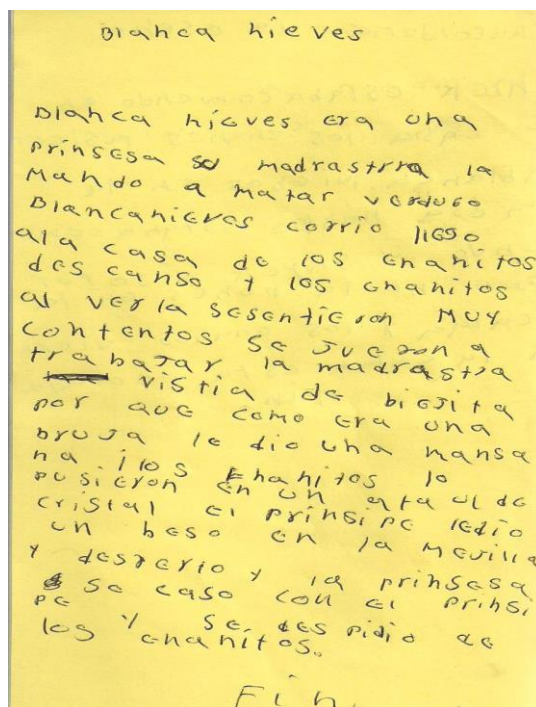 Blanca nieves
Blanca nieves era una
prinsesa su madrastra la
Mando a Matar verdugo
Blancanieves corrio llego
ala casa de los enanitos
des canso y los enanitos
al ver la sesentieron MUY
contentos se jueron a
trabajar la madrastra
vistia de biejita
por que como era una
bruja le dio una mansa
na ilos Enanitos lo
pusieron en un ata ul de
cristal el prinsipe ledio
un beso en la mevilla
y desperio y la prinsesa
se caso con el prinsi
pe y se des pidio de
los enanitos.
Fin.